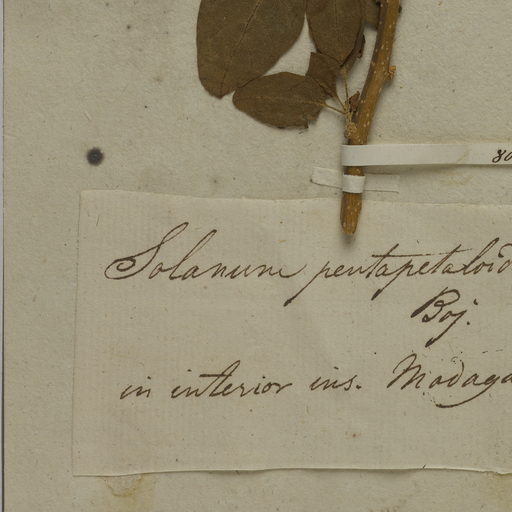 80
Solanum pentapetaloid
Boj.
in interior ins. Madaga